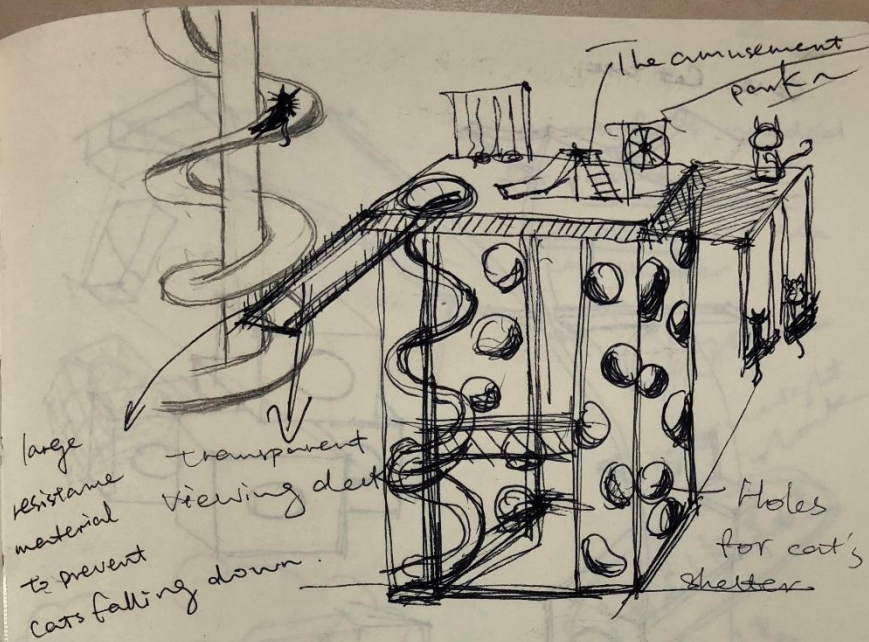 The amusement
park~
large
resistance
material
to prevent
cats falling down.
transparent
viewing deck
Holes
for cat's
shelter